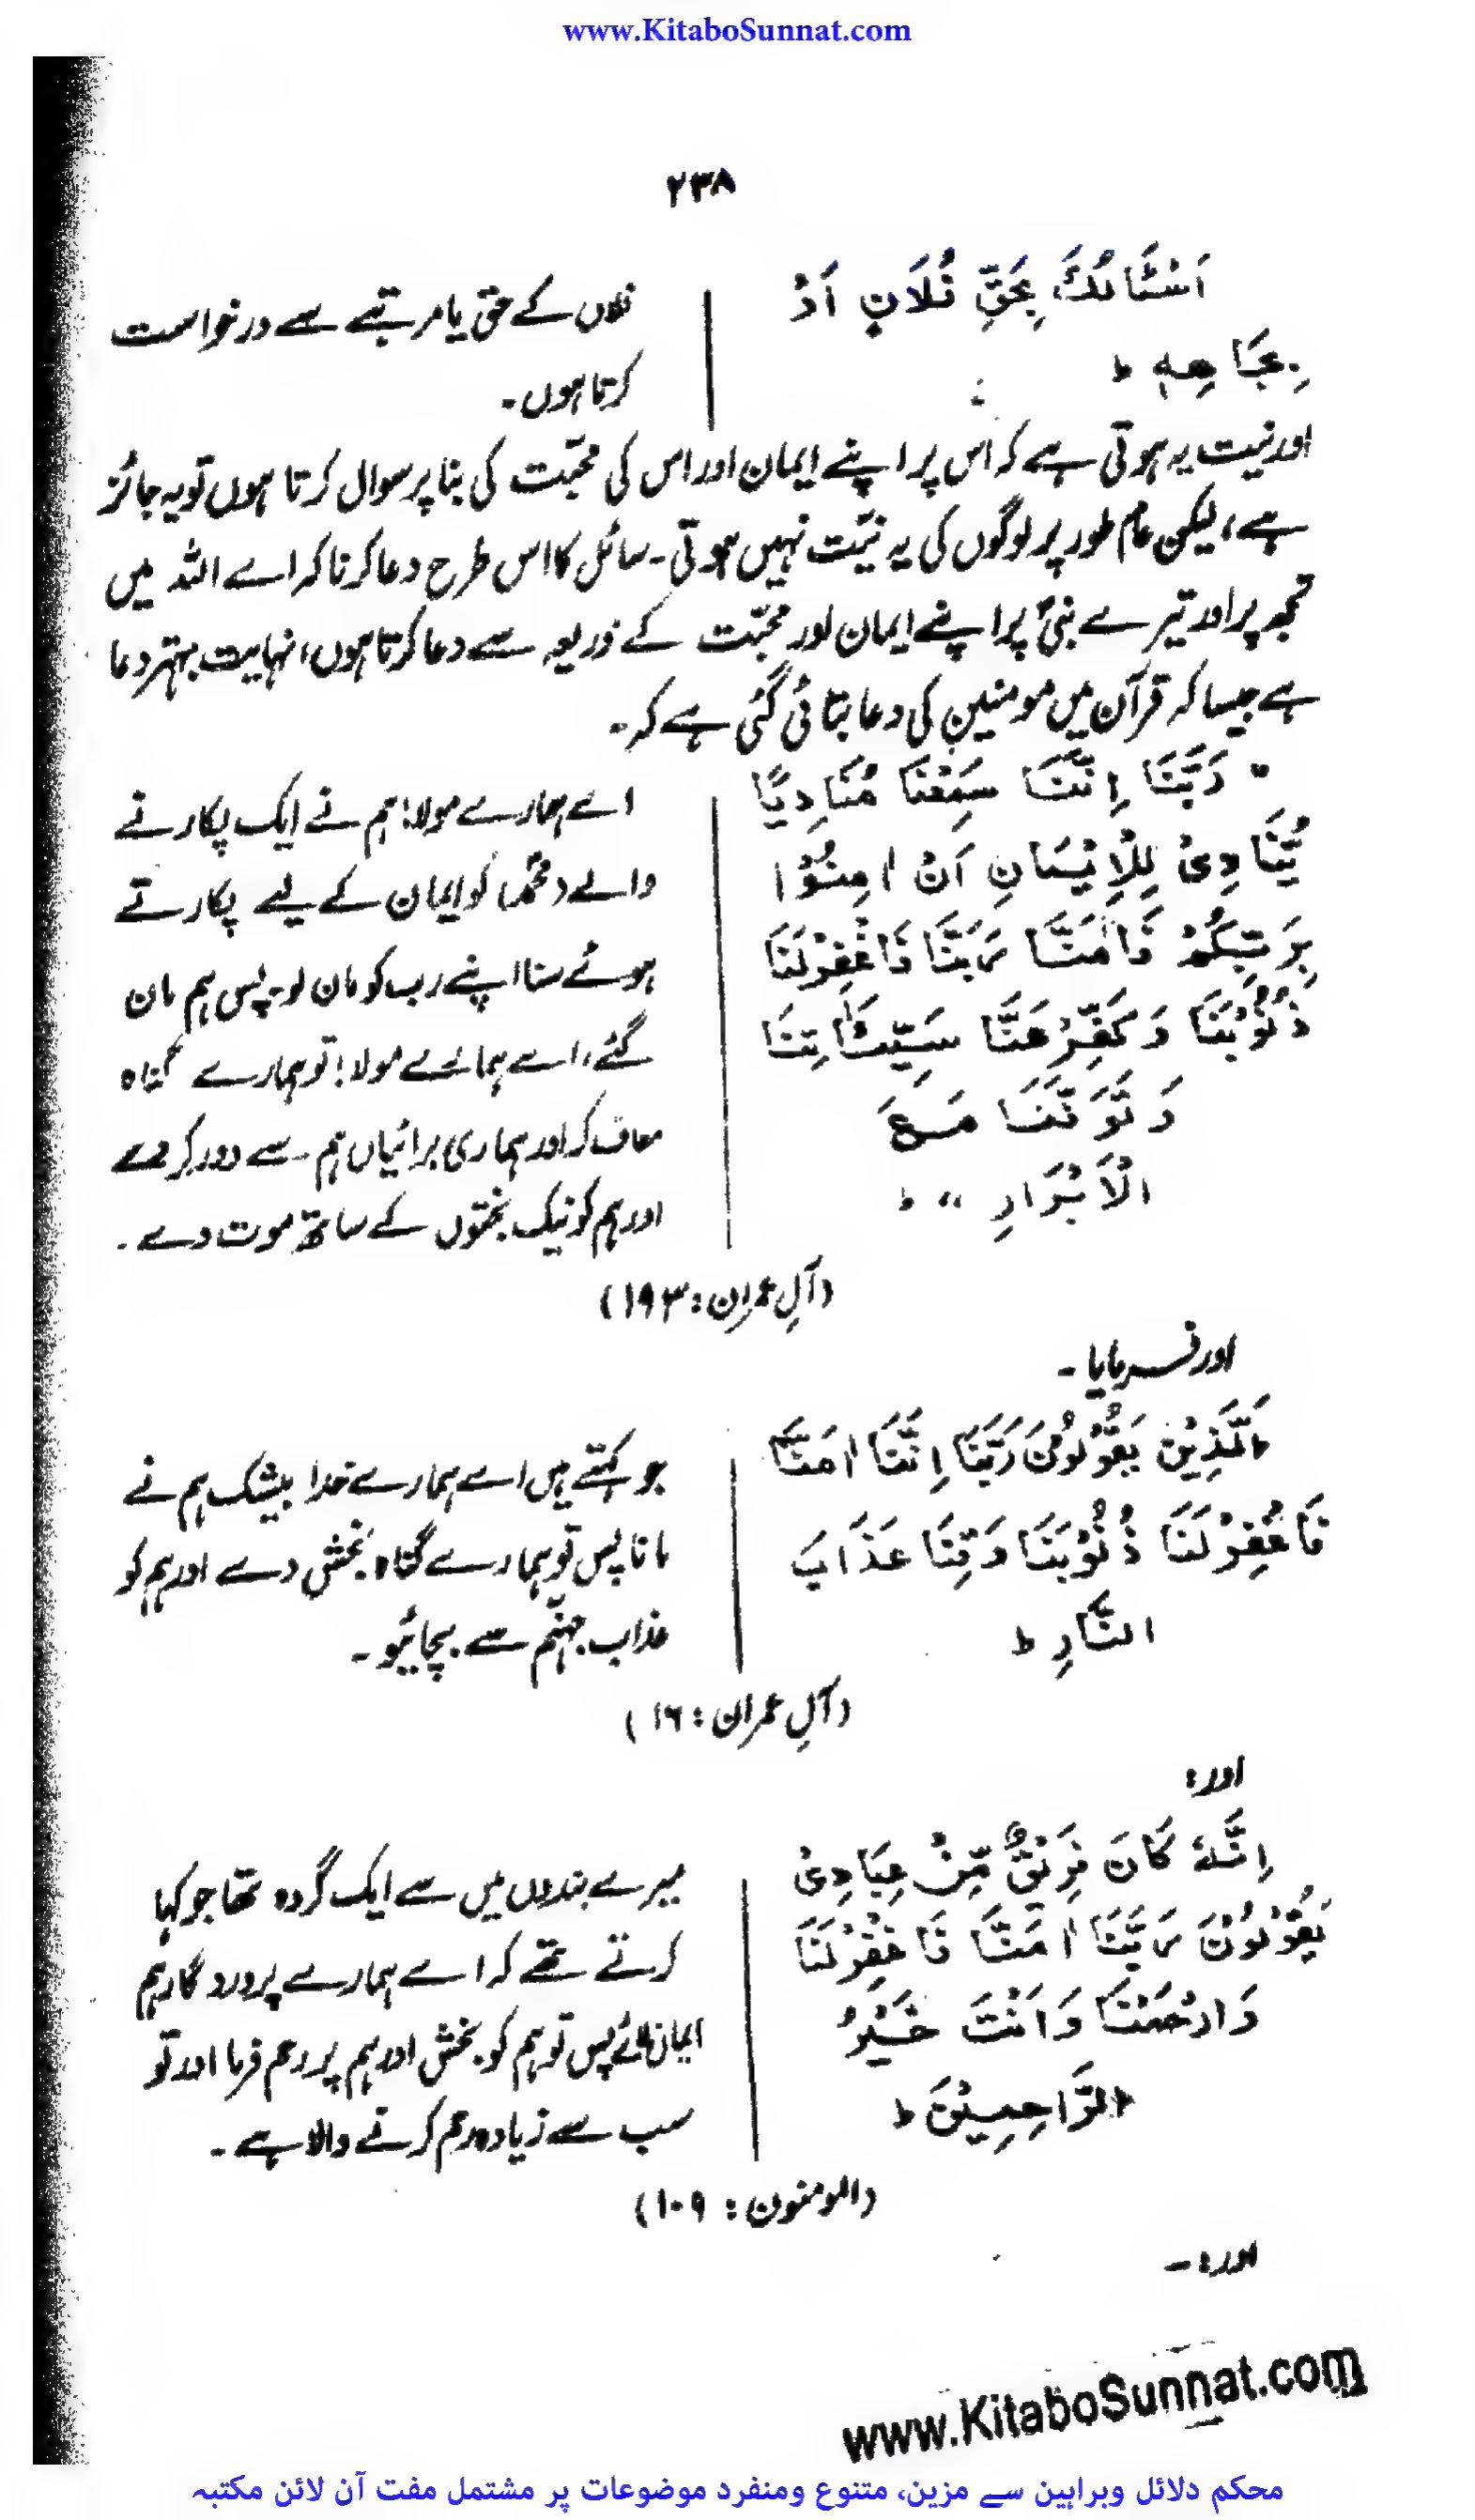 www.KitaboSunnat.com
۲۳۸
اَسْئَالُكَ بِحَقِّ فُلَانٍ اَوْ
بِجَاهِهٖ ط
فلاں کے حق یا مرتبے سے درخواست
کرتا ہوں۔
اور نیت یہ ہوتی ہے کہ اس پر اپنے ایمان اور اس کی محبّت کی بنا پر سوال کرتا ہوں تو یہ جائز
ہے، لیکن عام طور پر لوگوں کی یہ نیّت نہیں ہوتی۔ سائل کا اس طرح دعا کرنا کہ اے اللہ میں
تجھ پر اور تیرے نبیؐ پر اپنے ایمان اور محبّت کے ذریعہ سے دعا کرتا ہوں، نہایت بہتر دعا
ہے جیسا کہ قرآن میں مومنین کی دعا بتائی گئی ہے کہ۔
" رَبَّنَا اِنَّنَا سَمِعْنَا مُنَادِیًا
یُّنَادِیْ لِلْاِیْمَانِ اَنْ اٰمِنُوْا
بِرَبِّكُمْ فَاٰمَنَّا رَبَّنَا فَاغْفِرْلَنَا
ذُنُوْبَنَا وَكَفِّرْعَنَّا سَیِّئَاتِنَا
وَتَوَفَّنَا مَعَ
الْاَبْرَارِ " ط
اے ہمارے مولا! ہم نے ایک پکارنے
والے (محمّد) کو ایمان کے لیے پکارتے
ہوئے سنا اپنے رب کو مان لو۔ پس ہم مان
گئے، اے ہمارے مولا! تو ہمارے گناہ
معاف کر اور ہماری برائیاں ہم سے دور کر دے
اور ہم کو نیک بختوں کے ساتھ موت دے۔
(آلِ عمران: ۱۹۳)
اور فرمایا۔
اَلَّذِیْنَ یَقُوْلُوْنَ رَبَّنَا اِنَّنَا اٰمَنَّا
فَاغْفِرْلَنَا ذُنُوْبَنَا وَقِنَا عَذَابَ
النَّارِ ط
جو کہتے ہیں اے ہمارے خدا بیشک ہم نے
مانا پس تو ہمارے گناہ بخش دے اور ہم کو
عذاب جہنّم سے بچائیو۔
(آلِ عمران: ۱۶)
اور:
اِنَّهٗ كَانَ فَرِیْقٌ مِّنْ عِبَادِیْ
یَقُوْلُوْنَ رَبَّنَا اٰمَنَّا فَاغْفِرْلَنَا
وَارْحَمْنَا وَاَنْتَ خَیْرُ
الرَّاحِمِیْنَ ط
میرے بندوں میں سے ایک گروہ تھا جو کہا
کرتے تھے کہ اے ہمارے پروردگار ہم
ایمان لائے پس تو ہم کو بخش اور ہم پر رحم فرما اور تو
سب سے زیادہ رحم کرنے والا ہے۔
(المومنون: ۱۰۹)
اور:۔
www.KitaboSunnat.com
محکم دلائل وبراہین سے مزین، متنوع ومنفرد موضوعات پر مشتمل مفت آن لائن مکتبہ